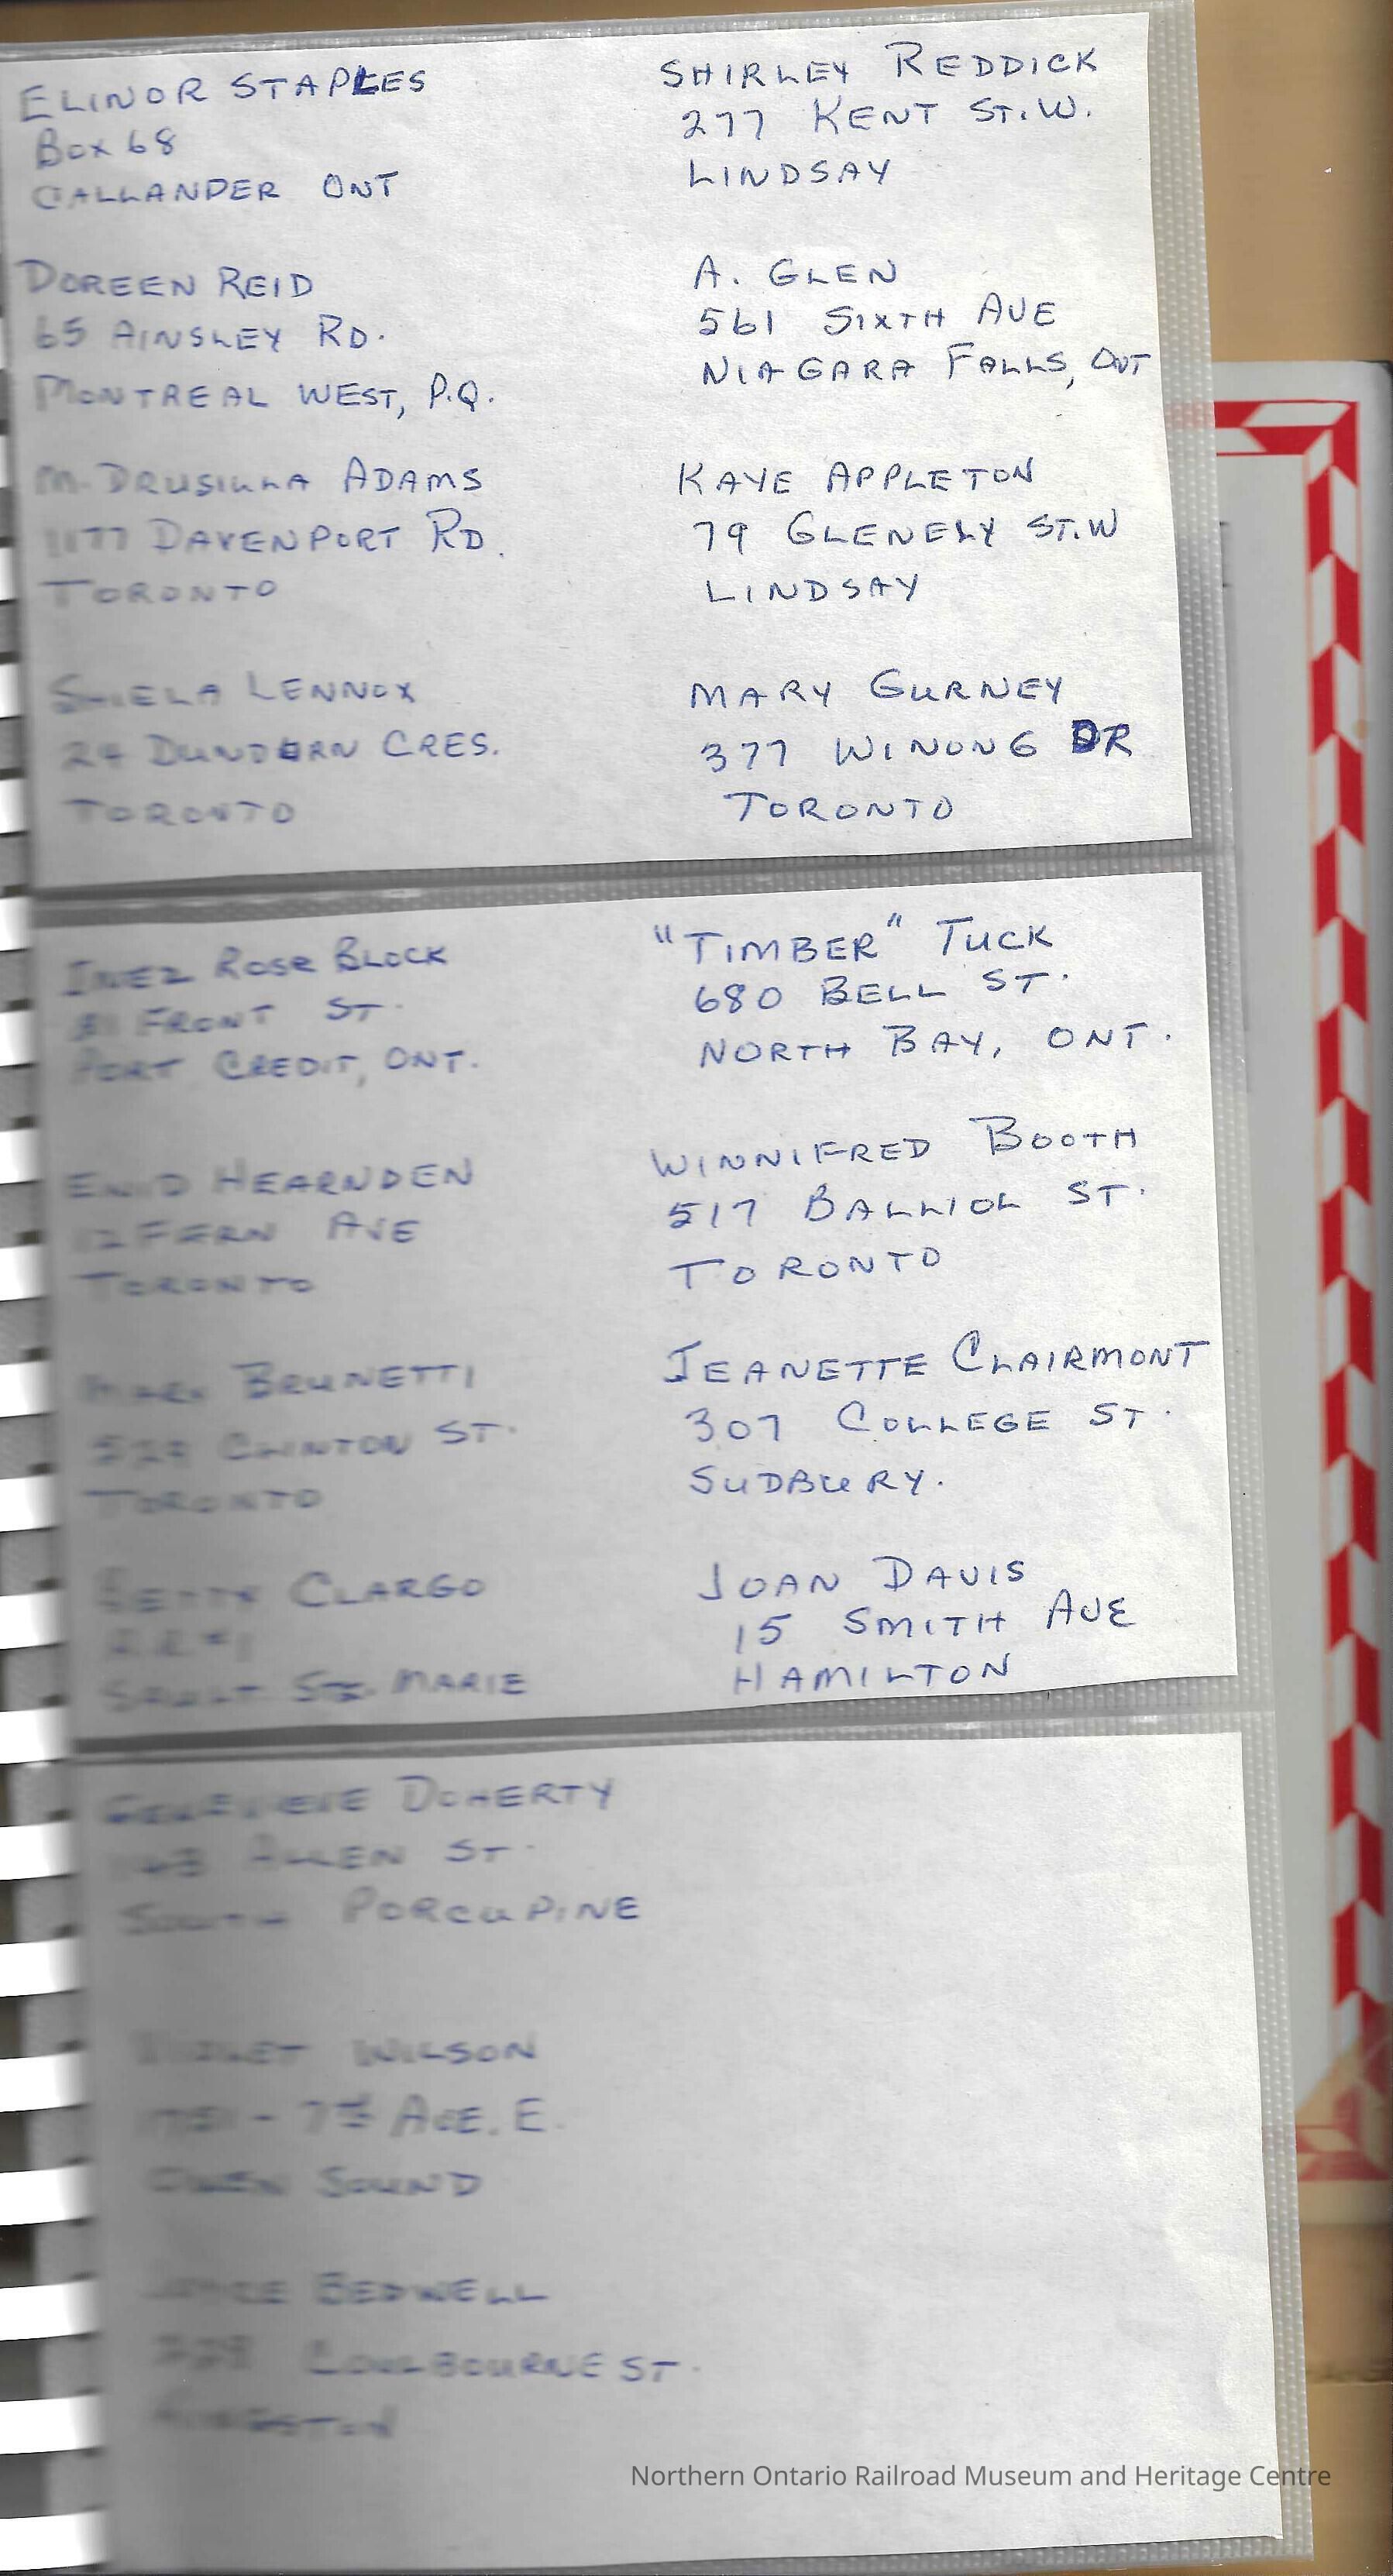 ELINOR STAPLES
BOX 68
CALLANDER ONT
DOREEN REID
65 AINSLEY RD.
MONTREAL WEST, P.Q.
M. DRUSILLA ADAMS
1177 DAVENPORT RD.
TORONTO
SHIELA LENNOX
24 DUNDURN CRES.
TORONTO
SHIRLEY REDDICK
277 KENT ST. W.
LINDSAY
A. GLEN
561 SIXTH AVE
NIAGARA FALLS, ONT
KAYE APPLETON
79 GLENELY ST. W
LINDSAY
MARY GURNEY
377 WINONG DR
TORONTO
INEZ ROSE BLOCK
81 FRONT ST.
PORT CREDIT, ONT.
ENID HEARNDEN
12 FERN AVE
TORONTO
MARY BRUNETTI
CLINTON ST.
TORONTO
BETTY CLARGO
R.R. #1
SAULT STE. MARIE
"TIMBER" TUCK
680 BELL ST.
NORTH BAY, ONT.
WINNIFRED BOOTH
517 BALLIOL ST.
TORONTO
JEANETTE CLAIRMONT
307 COLLEGE ST.
SUDBURY.
JOAN DAVIS
15 SMITH AVE
HAMILTON
GENEVIEVE DOHERTY
ALLEN ST.
SOUTH PORCUPINE
VIOLET WILSON
7TH AVE. E.
OWEN SOUND
JOYCE BEDWELL
COULBOURNE ST.
KINGSTON
Northern Ontario Railroad Museum and Heritage Centre